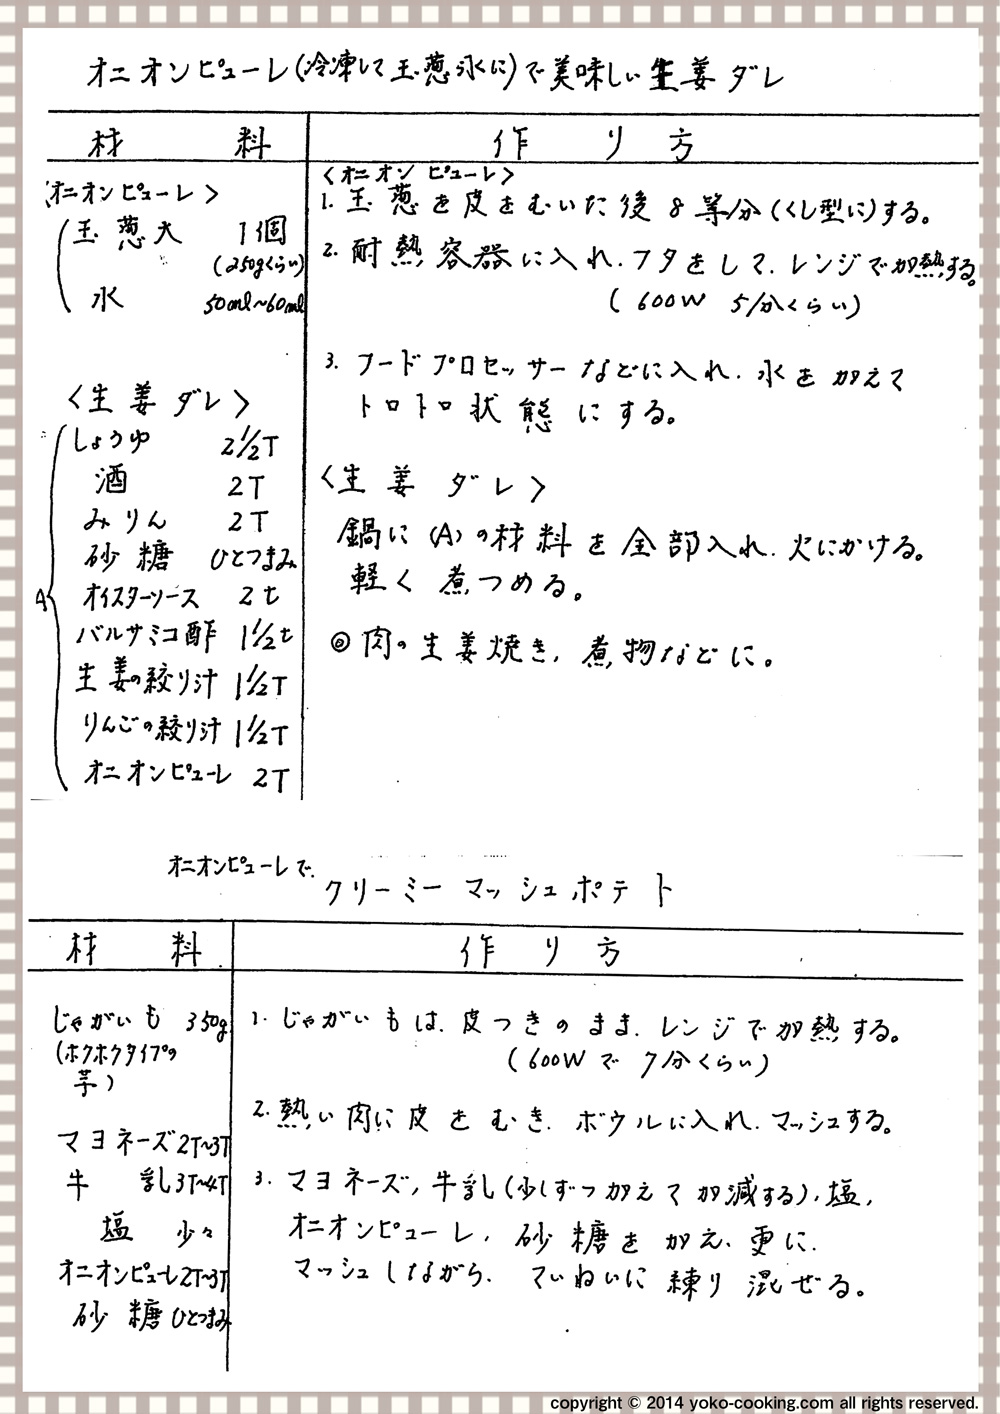 オニオンピューレ(冷凍して玉葱氷に)で美味しい生姜ダレ
材料
作り方
〈オニオンピューレ〉
玉葱大 1個
(250gくらい)
水 50ml~60ml
〈生姜ダレ〉
A
しょうゆ 2 1/2T
酒 2T
みりん 2T
砂糖 ひとつまみ
オイスターソース 2t
バルサミコ酢 1 1/2t
生姜の絞り汁 1 1/2T
りんごの絞り汁 1 1/2T
オニオンピューレ 2T
〈オニオンピューレ〉
1. 玉葱を皮をむいた後8等分(くし型に)する。
2. 耐熱容器に入れ、フタをして、レンジで加熱する。
(600W 5分くらい)
3. フードプロセッサーなどに入れ、水を加えて
トロトロ状態にする。
〈生姜ダレ〉
鍋に(A)の材料を全部入れ、火にかける。
軽く煮つめる。
◎肉の生姜焼き、煮物などに。
オニオンピューレで、
クリーミーマッシュポテト
材料
作り方
じゃがいも 350g
(ホクホクタイプの
芋)
マヨネーズ 2T~3T
牛乳 3T~4T
塩 少々
オニオンピューレ 2T~3T
砂糖 ひとつまみ
1. じゃがいもは、皮つきのまま、レンジで加熱する。
(600Wで 7分くらい)
2. 熱い内に皮をむき、ボウルに入れ、マッシュする。
3. マヨネーズ、牛乳(少しずつ加えて加減する)、塩、
オニオンピューレ、砂糖を加え、更に、
マッシュしながら、ていねいに練り混ぜる。
copyright © 2014 yoko-cooking.com all rights reserved.